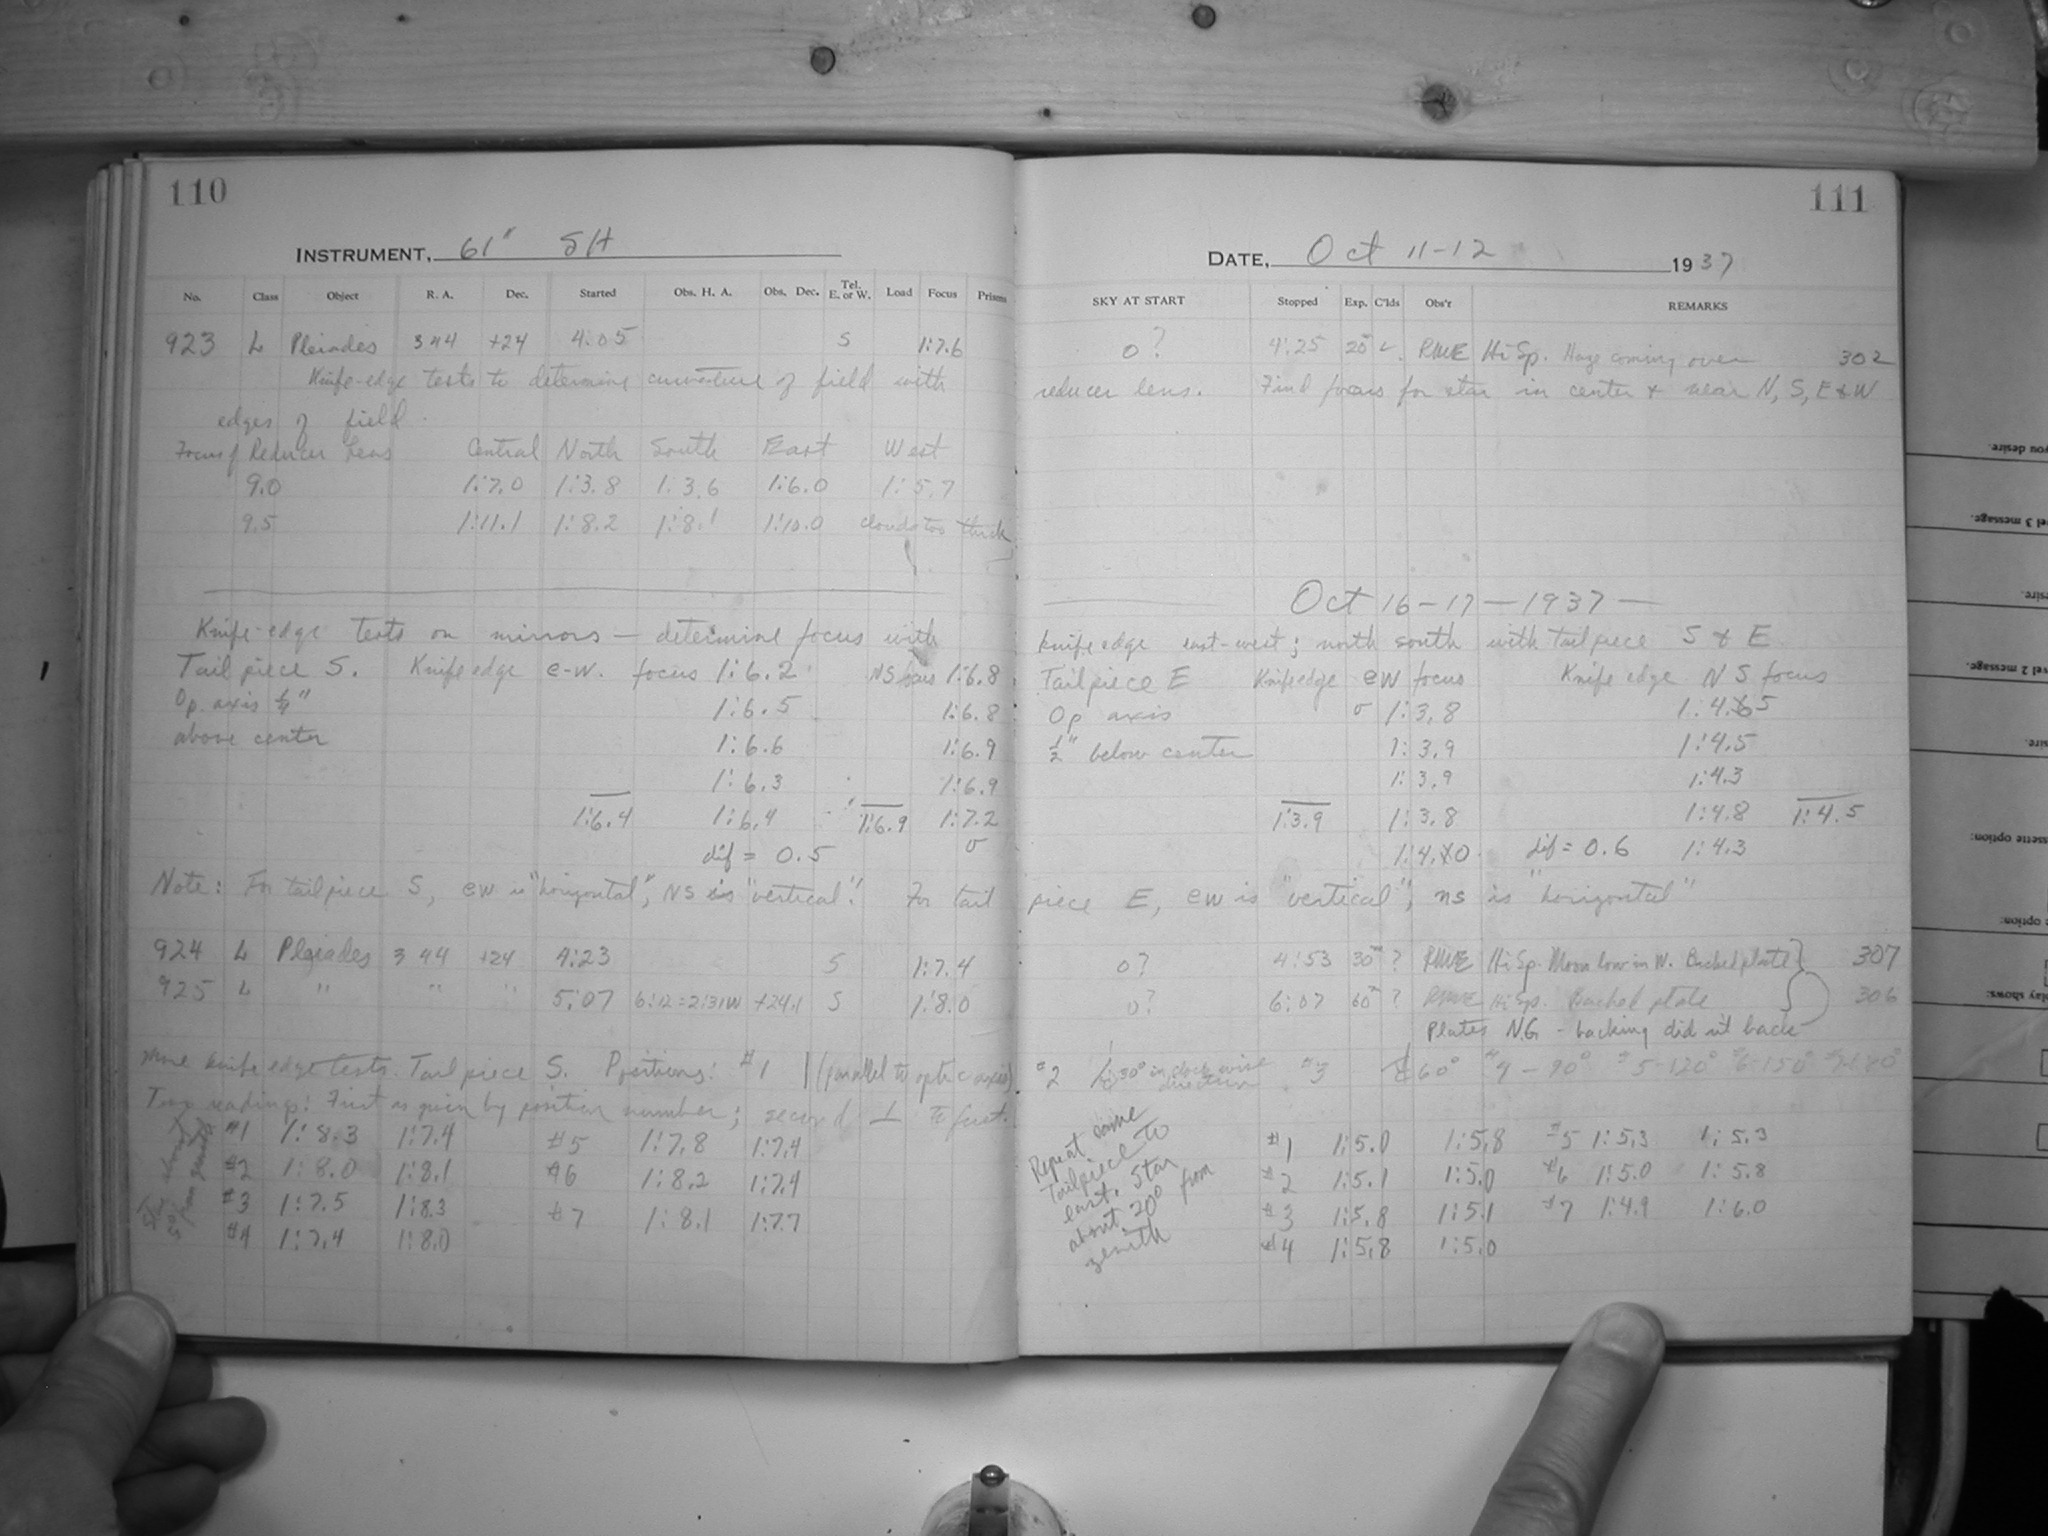 110
INSTRUMENT, 61" SH
No. Class Object R. A. Dec. Started Obs. H. A. Obs. Dec. Tel. E. or W. Load Focus Prisms
923 L Pleiades 3 44 +24 4:05 S 1:7.6
Knife-edge tests to determine curvature of field with
edges of field.
Focus of Reducer Lens Central North South East West
9.0 1:7.0 1:3.8 1:3.6 1:6.0 1:5.7
9.5 1:11.1 1:8.2 1:8.1 1:10.0 clouds too thick
Knife-edge tests on mirrors — determine focus with
Tail piece S. Knife edge e-w. focus 1:6.2 NS focus 1:6.8
Op. axis ½" 1:6.5 1:6.8
above center 1:6.6 1:6.9
1:6.3 1:6.9
1:6.4 1:6.4 1:6.9 1:7.2
dif = 0.5
Note: For tailpiece S, ew is "horizontal", NS is "vertical". For tail
924 L Pleiades 3 44 +24 4:23 S 1:7.4
925 L " " " 5:07 6:12=2:31W +24.1 S 1:8.0
More knife edge tests. Tail piece S. Positions: #1 | (parallel to optic axis)
Two readings: First as given by position number; second ⊥ to first.
#1 1:8.3 1:7.4 #5 1:7.8 1:7.4
#2 1:8.0 1:8.1 #6 1:8.2 1:7.4
#3 1:7.5 1:8.3 #7 1:8.1 1:7.7
#4 1:7.4 1:8.0
111
DATE, Oct 11-12 1937
SKY AT START Stopped Exp. C'lds Obs'r REMARKS
0? 4:25 20 c. RME Hi Sp. Haze coming over 302
reducer lens. Find focus for star in center & near N, S, E & W
Oct 16-17-1937-
knife edge east-west; north south with tail piece S & E
Tail piece E Knife edge ew focus Knife edge NS focus
Op axis 1:3.8 1:4.5
½" below center 1:3.9 1:4.5
1:3.9 1:4.3
1:3.9 1:3.8 1:4.8 1:4.5
1:4.0 dif = 0.6 1:4.3
piece E, ew is "vertical", ns is "horizontal"
0? 4:53 30m ? RME Hi Sp. Moon low in W. Backed plate 307
0? 6:07 60m ? RME Hi Sp. Backed plate 306
Plates N.G - backing did n't back
#2 30° in clockwise direction #3 60° #4 - 90° #5-120° #6-150° #7-180°
Repeat same
Tailpiece to
east. Star
about 20° from
zenith
#1 1:5.0 1:5.8 #5 1:5.3 1:5.3
#2 1:5.1 1:5.0 #6 1:5.0 1:5.8
#3 1:5.8 1:5.1 #7 1:4.9 1:6.0
#4 1:5.8 1:5.0
you desire.
vel 3 message.
sire.
vel 2 message.
sire.
ssette option:
option:
play shows: